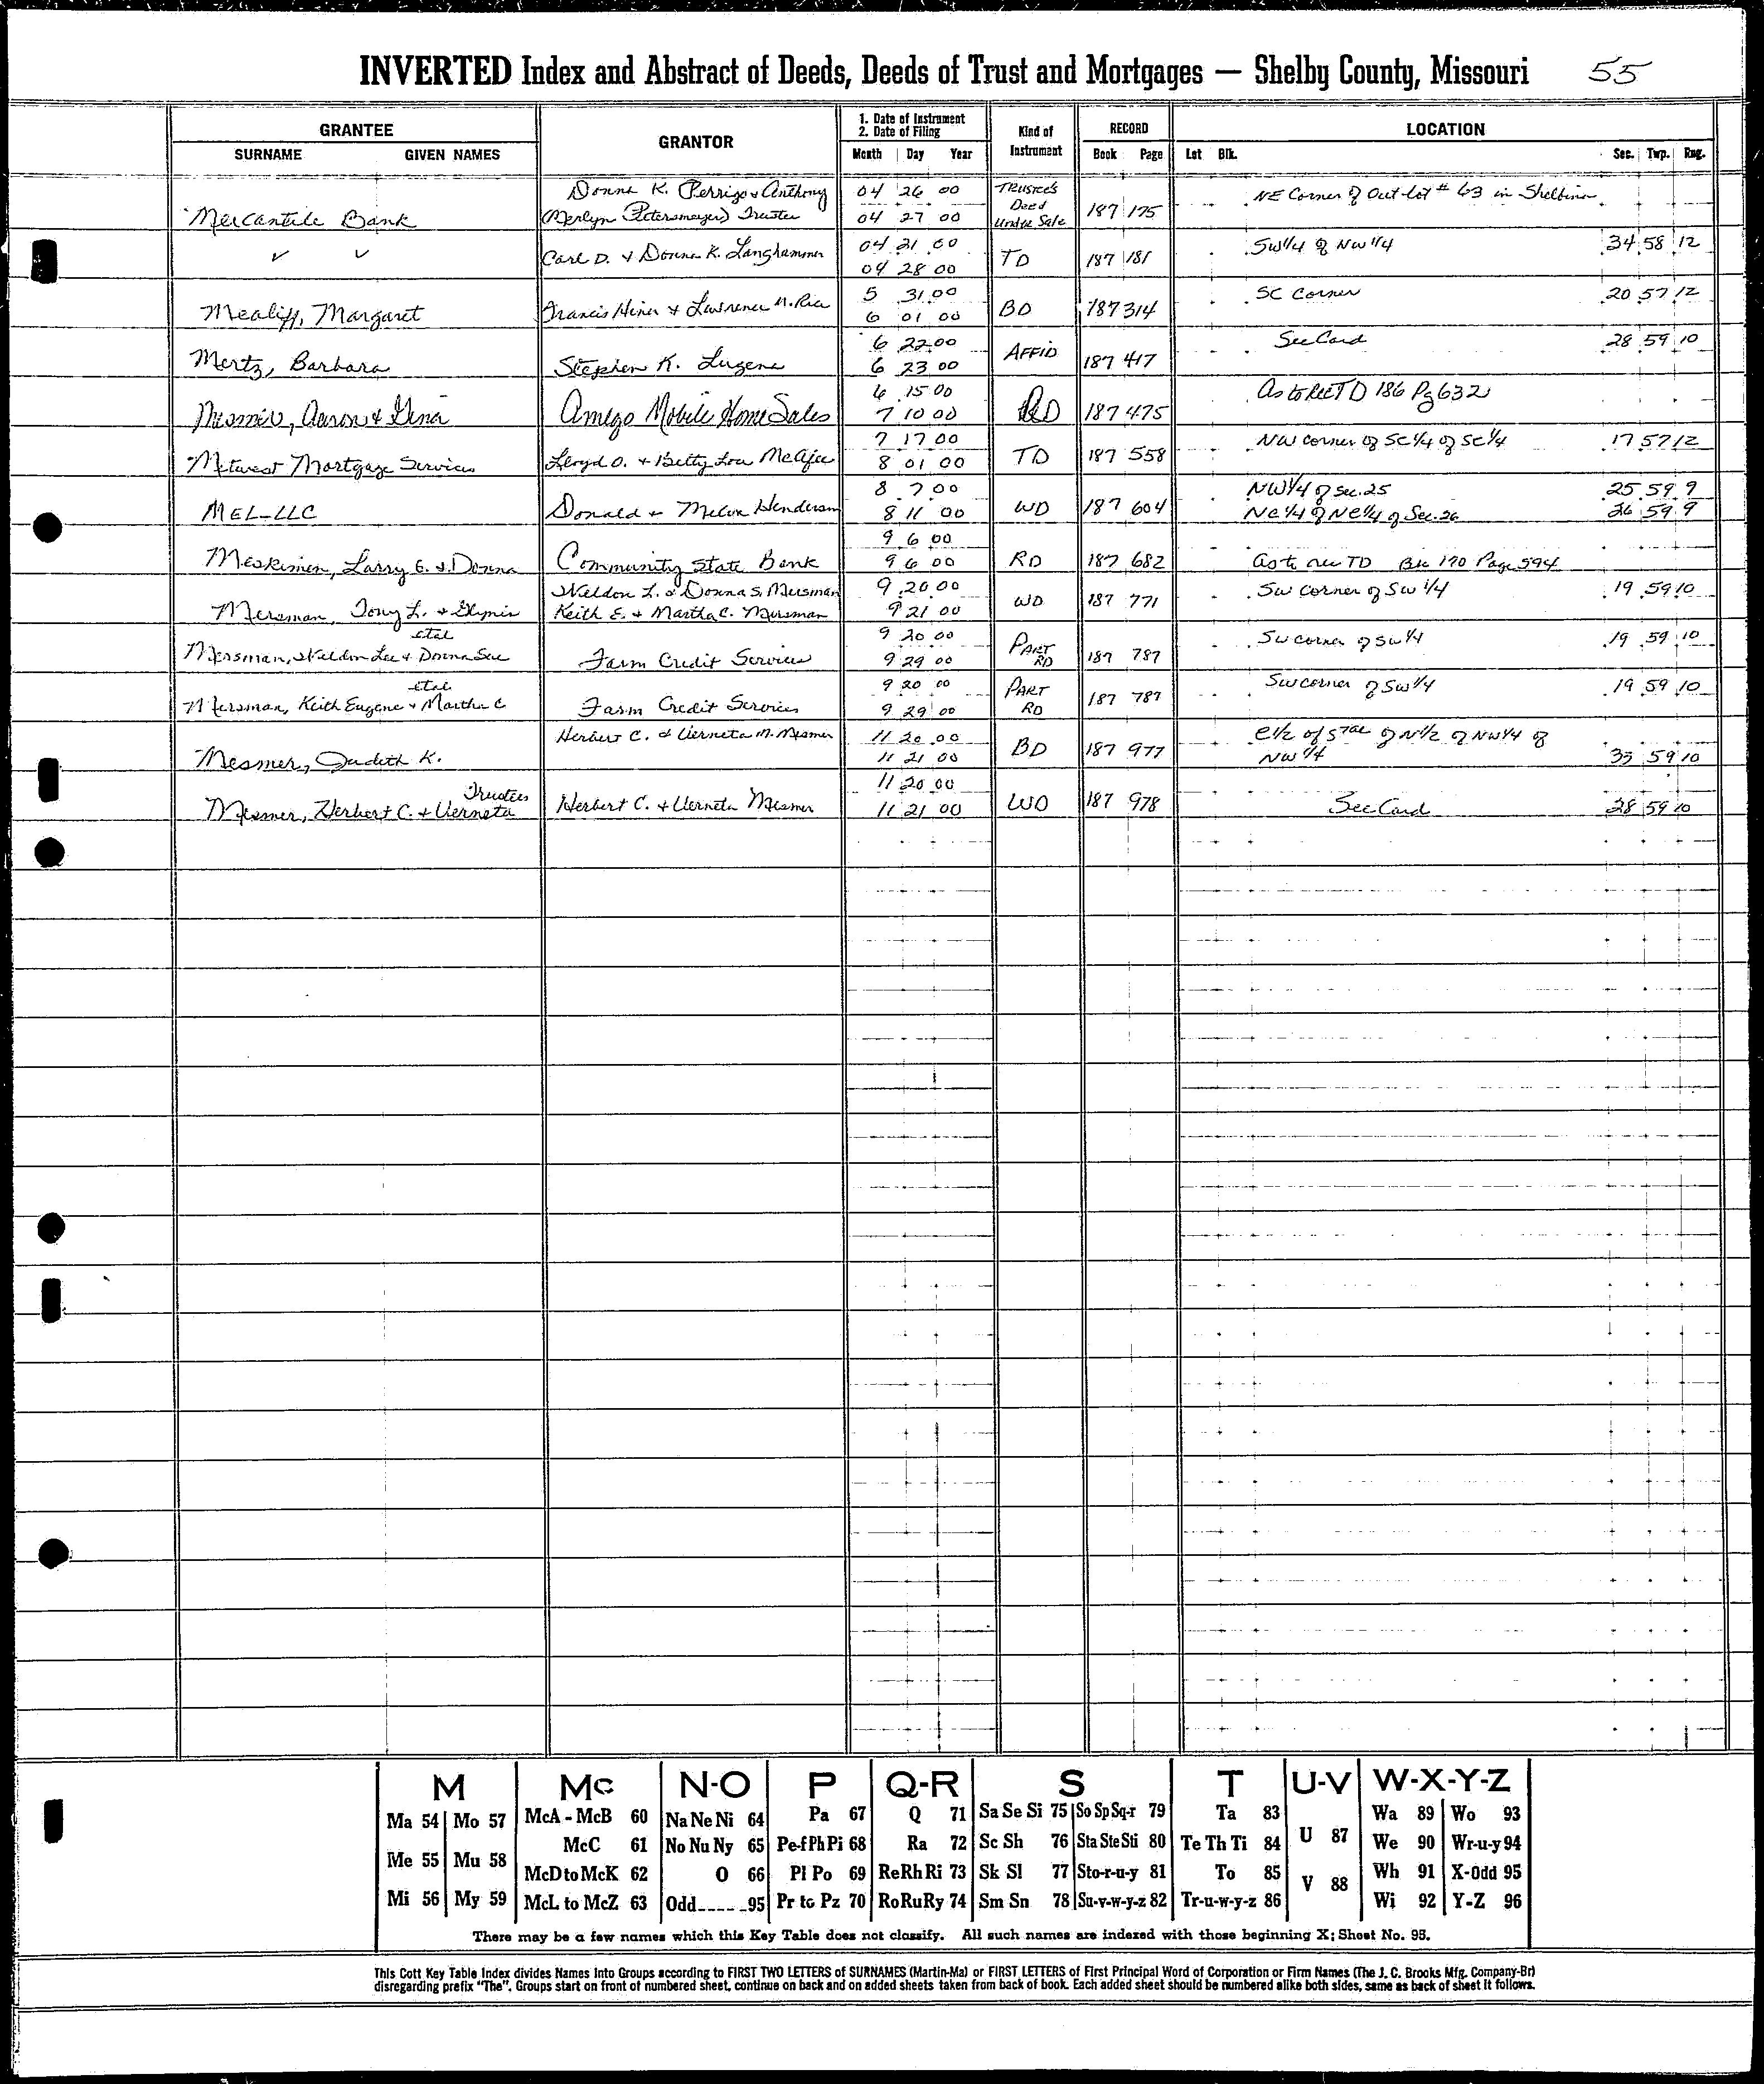 INVERTED Index and Abstract of Deeds, Deeds of Trust and Mortgages — Shelby County, Missouri 55
GRANTEE GRANTOR 1. Date of Instrument 2. Date of Filing Kind of Instrument RECORD LOCATION
SURNAME GIVEN NAMES Month Day Year Book Page Lot Blk. Sec. Twp. Rng.
Donna K. Perrigo & Anthony 04 26 00 TRUSTEE'S Deed NE Corner of Out-lot # 63 in Shelbina
Mercantile Bank (Merlyn Petersmeyer) Trustee 04 27 00 Under Sale 187 175
✓ ✓ Carl D. & Donna K. Langhammer 04 21 00 TD 187 181 SW1/4 of NW 1/4 34 58 12
04 28 00
Mealiff, Margaret Francis Hiner & Lawrence N. Rice 5 31 00 BD 187 314 SC Corner 20 57 12
6 01 00
Mertz, Barbara Stephen K. Lugene 6 22 00 AFFID 187 417 See Card 28 59 10
6 23 00
Mesmer, Aaron & Gina Amego Mobile Home Sales 6 15 00 RD 187 475 As to Rec TD 186 Pg 632
7 10 00
Metwest Mortgage Services Lloyd O. & Betty Lou McAfee 7 17 00 TD 187 558 NW corner of SC 1/4 of SC 1/4 17 57 12
8 01 00
8 7 00 NW 1/4 of Sec. 25 25 59 9
MEL-LLC Donald & Melva Henderson 8 11 00 WD 187 604 NE 1/4 of NE 1/4 of Sec. 26 26 59 9
9 6 00
Meskimen, Larry G. & Donna Community State Bank 9 6 00 RD 187 682 as to rec TD Bk 170 Page 594
Weldon L. & Donna S. Mersman 9 20 00 SW Corner of SW 1/4 19 59 10
Mersman, Tony L. & Keith E. & Martha C. Mersman 9 21 00 WD 187 771
etal 9 20 00 PART SW corner of SW 1/4 19 59 10
Mersman, Weldon Lee & Donna Sue Farm Credit Services 9 29 00 RD 187 787
etal 9 20 00 PART SW corner of SW 1/4 19 59 10
Mersman, Keith Eugene & Martha C Farm Credit Services 9 29 00 RD 187 787
Herbert C. & Verneta M. Mesmer 11 20 00 BD 187 977 E 1/2 of of N 1/2 of NW 1/4 of
Mesmer, Judith K. 11 21 00 NW 1/4 33 59 10
Trustees 11 20 00
Mesmer, Herbert C. & Verneta Herbert C. & Verneta Mesmer 11 21 00 WD 187 978 See Card 28 59 10
M Mc N-O P Q-R S T U-V W-X-Y-Z
Ma 54 Mo 57 McA - McB 60 Na Ne Ni 64 Pa 67 Q 71 Sa Se Si 75 So Sp Sq-r 79 Ta 83 U 87 Wa 89 Wo 93
Me 55 Mu 58 McC 61 No Nu Ny 65 Pe-f Ph Pi 68 Ra 72 Sc Sh 76 Sta Ste Sti 80 Te Th Ti 84 We 90 Wr-u-y 94
McD to McK 62 O 66 Pl Po 69 Re Rh Ri 73 Sk Sl 77 Sto-r-u-y 81 To 85 V 88 Wh 91 X-Odd 95
Mi 56 My 59 McL to McZ 63 Odd 95 Pr to Pz 70 Ro Ru Ry 74 Sm Sn 78 Su-v-w-y-z 82 Tr-u-w-y-z 86 Wi 92 Y-Z 96
There may be a few names which this Key Table does not classify. All such names are indexed with those beginning X; Sheet No. 95.
This Cott Key Table Index divides Names Into Groups according to FIRST TWO LETTERS of SURNAMES (Martin-Ma) or FIRST LETTERS of First Principal Word of Corporation or Firm Names (The J. C. Brooks Mfg. Company-Br)
disregarding prefix "The". Groups start on front of numbered sheet, continue on back and on added sheets taken from back of book. Each added sheet should be numbered alike both sides, same as back of sheet it follows.